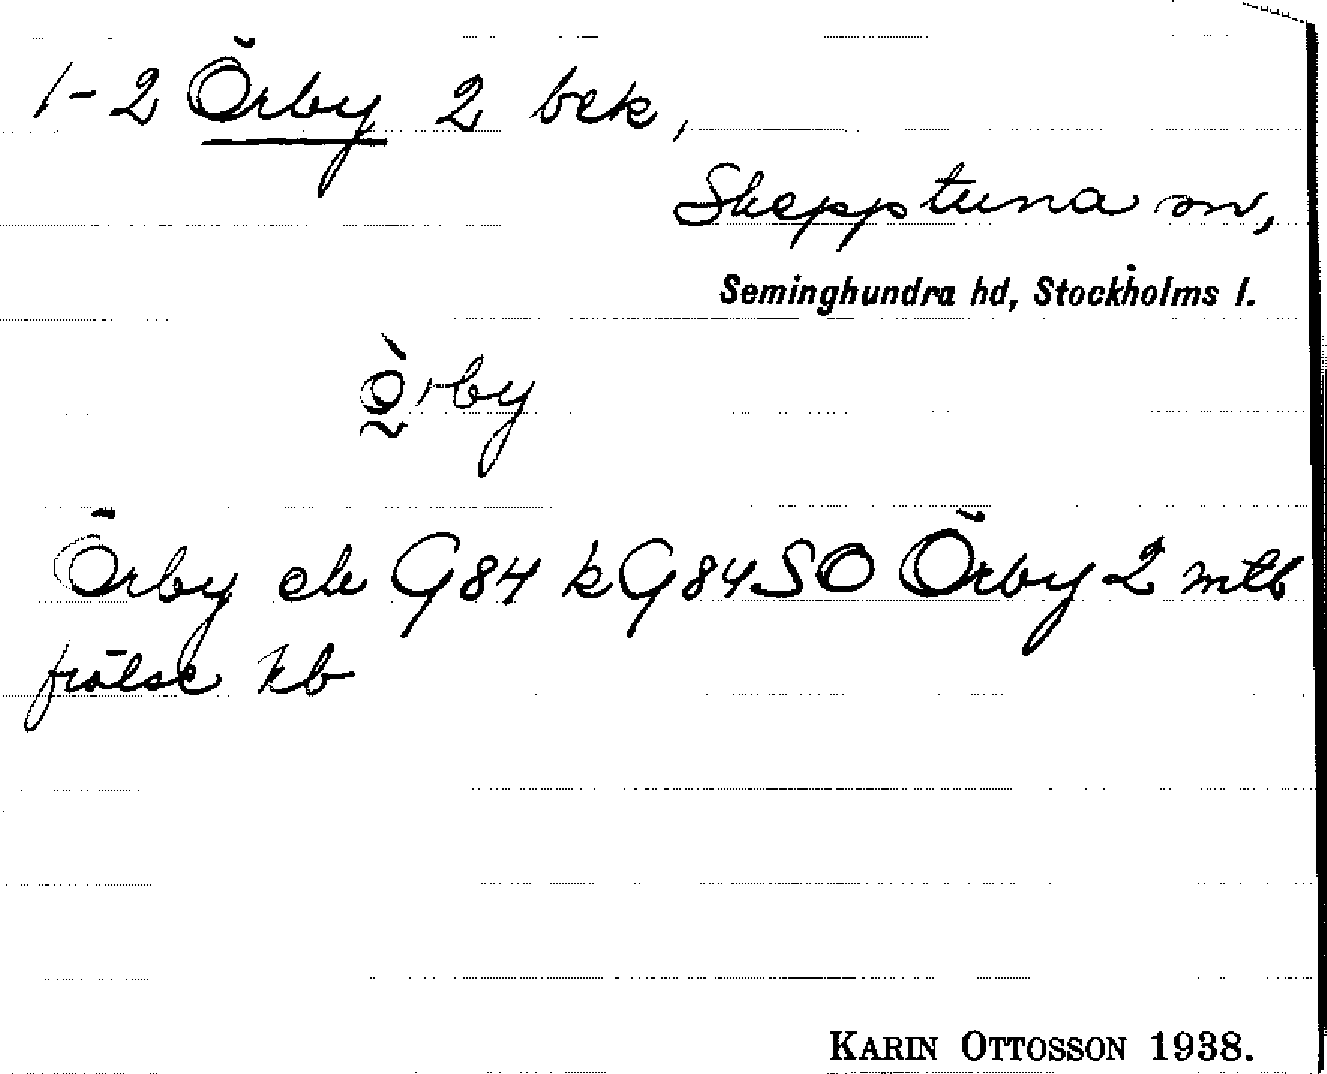 1-2 Örby 2 bek,
Skepptuna sn,
Seminghundra hd, Stockholms l.
ò̰rby
Örby ek G84 kG84SO Örby 2 mtl
frälse kb
KARIN OTTOSSON 1938.